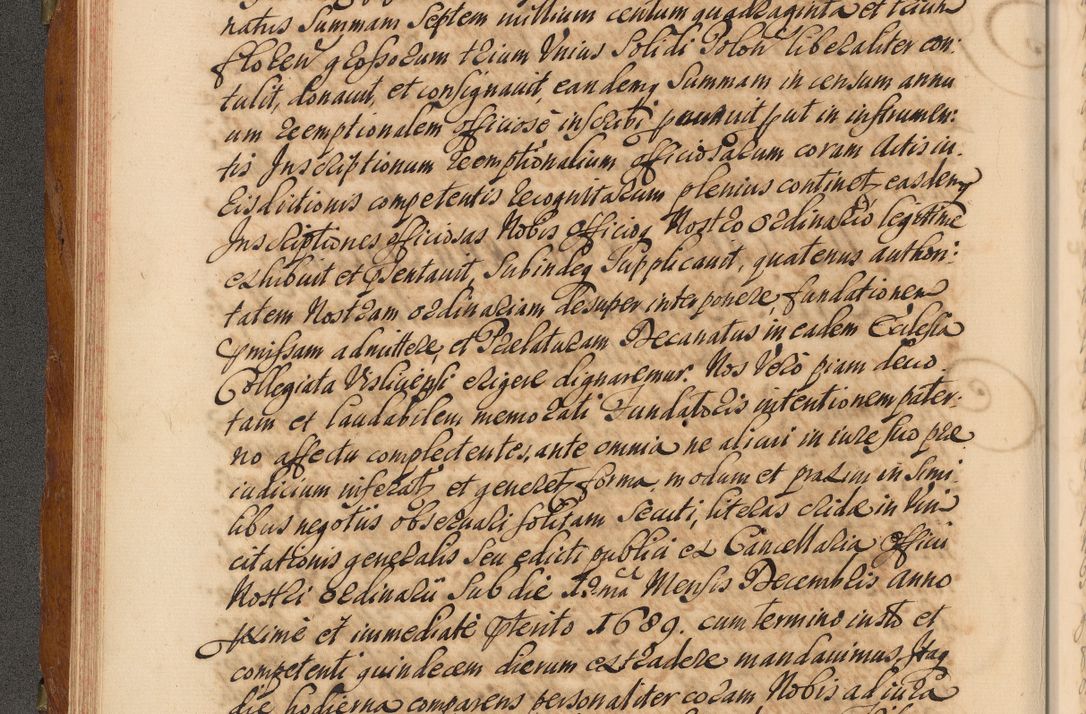 natus Summam Septem millium centum quadraginta et
floren grossorum trium Unius Solidi Polon liberaliter con:
tulit, donauit, et consignauit, eandemq Summam in censum annu
um reemptionalem officiosè inscribi put in instrumen:
tis Inscriptionum reemptionalium officiosarum coram Actis iu
risdictionis competentis recognitarum plenius continet, easdemq
Inscriptiones officiosas Nobis Officioq Nostro ordinario legittimè
exhibuit et pñtauit, Subindeq Supplicauit, quatenus authori:
tatem Nostram ordinariam desuper interponere, fundationem
pmissam admittere, et Prælaturam Decanatus in eadem Ecclesia
Collegiata Vislicensi erigere dignaremur. Nos Verò piam deuo
tam et laudabilem memorati Fundatoris intentionem pater:
no affectu complectentes, ante omnia ne alicui in iure suo præ
iudicium inferat, et generet, forma, modum et praxim in Simi
libus negotiis obseruari solitam Secuti, literas cridæ in Vim
citationis generalis Seu edicti publici ex Cancellaria Officii
Nostri Ordinarii Sub die 12ma Mensis Decembris Anno
pximè et immediatè pterito 1689. cum termino iusto et
competenti quindecem dierum extradere mandauimus, Itaq
die hodierna comparens personaliter coram Nobis ad iura